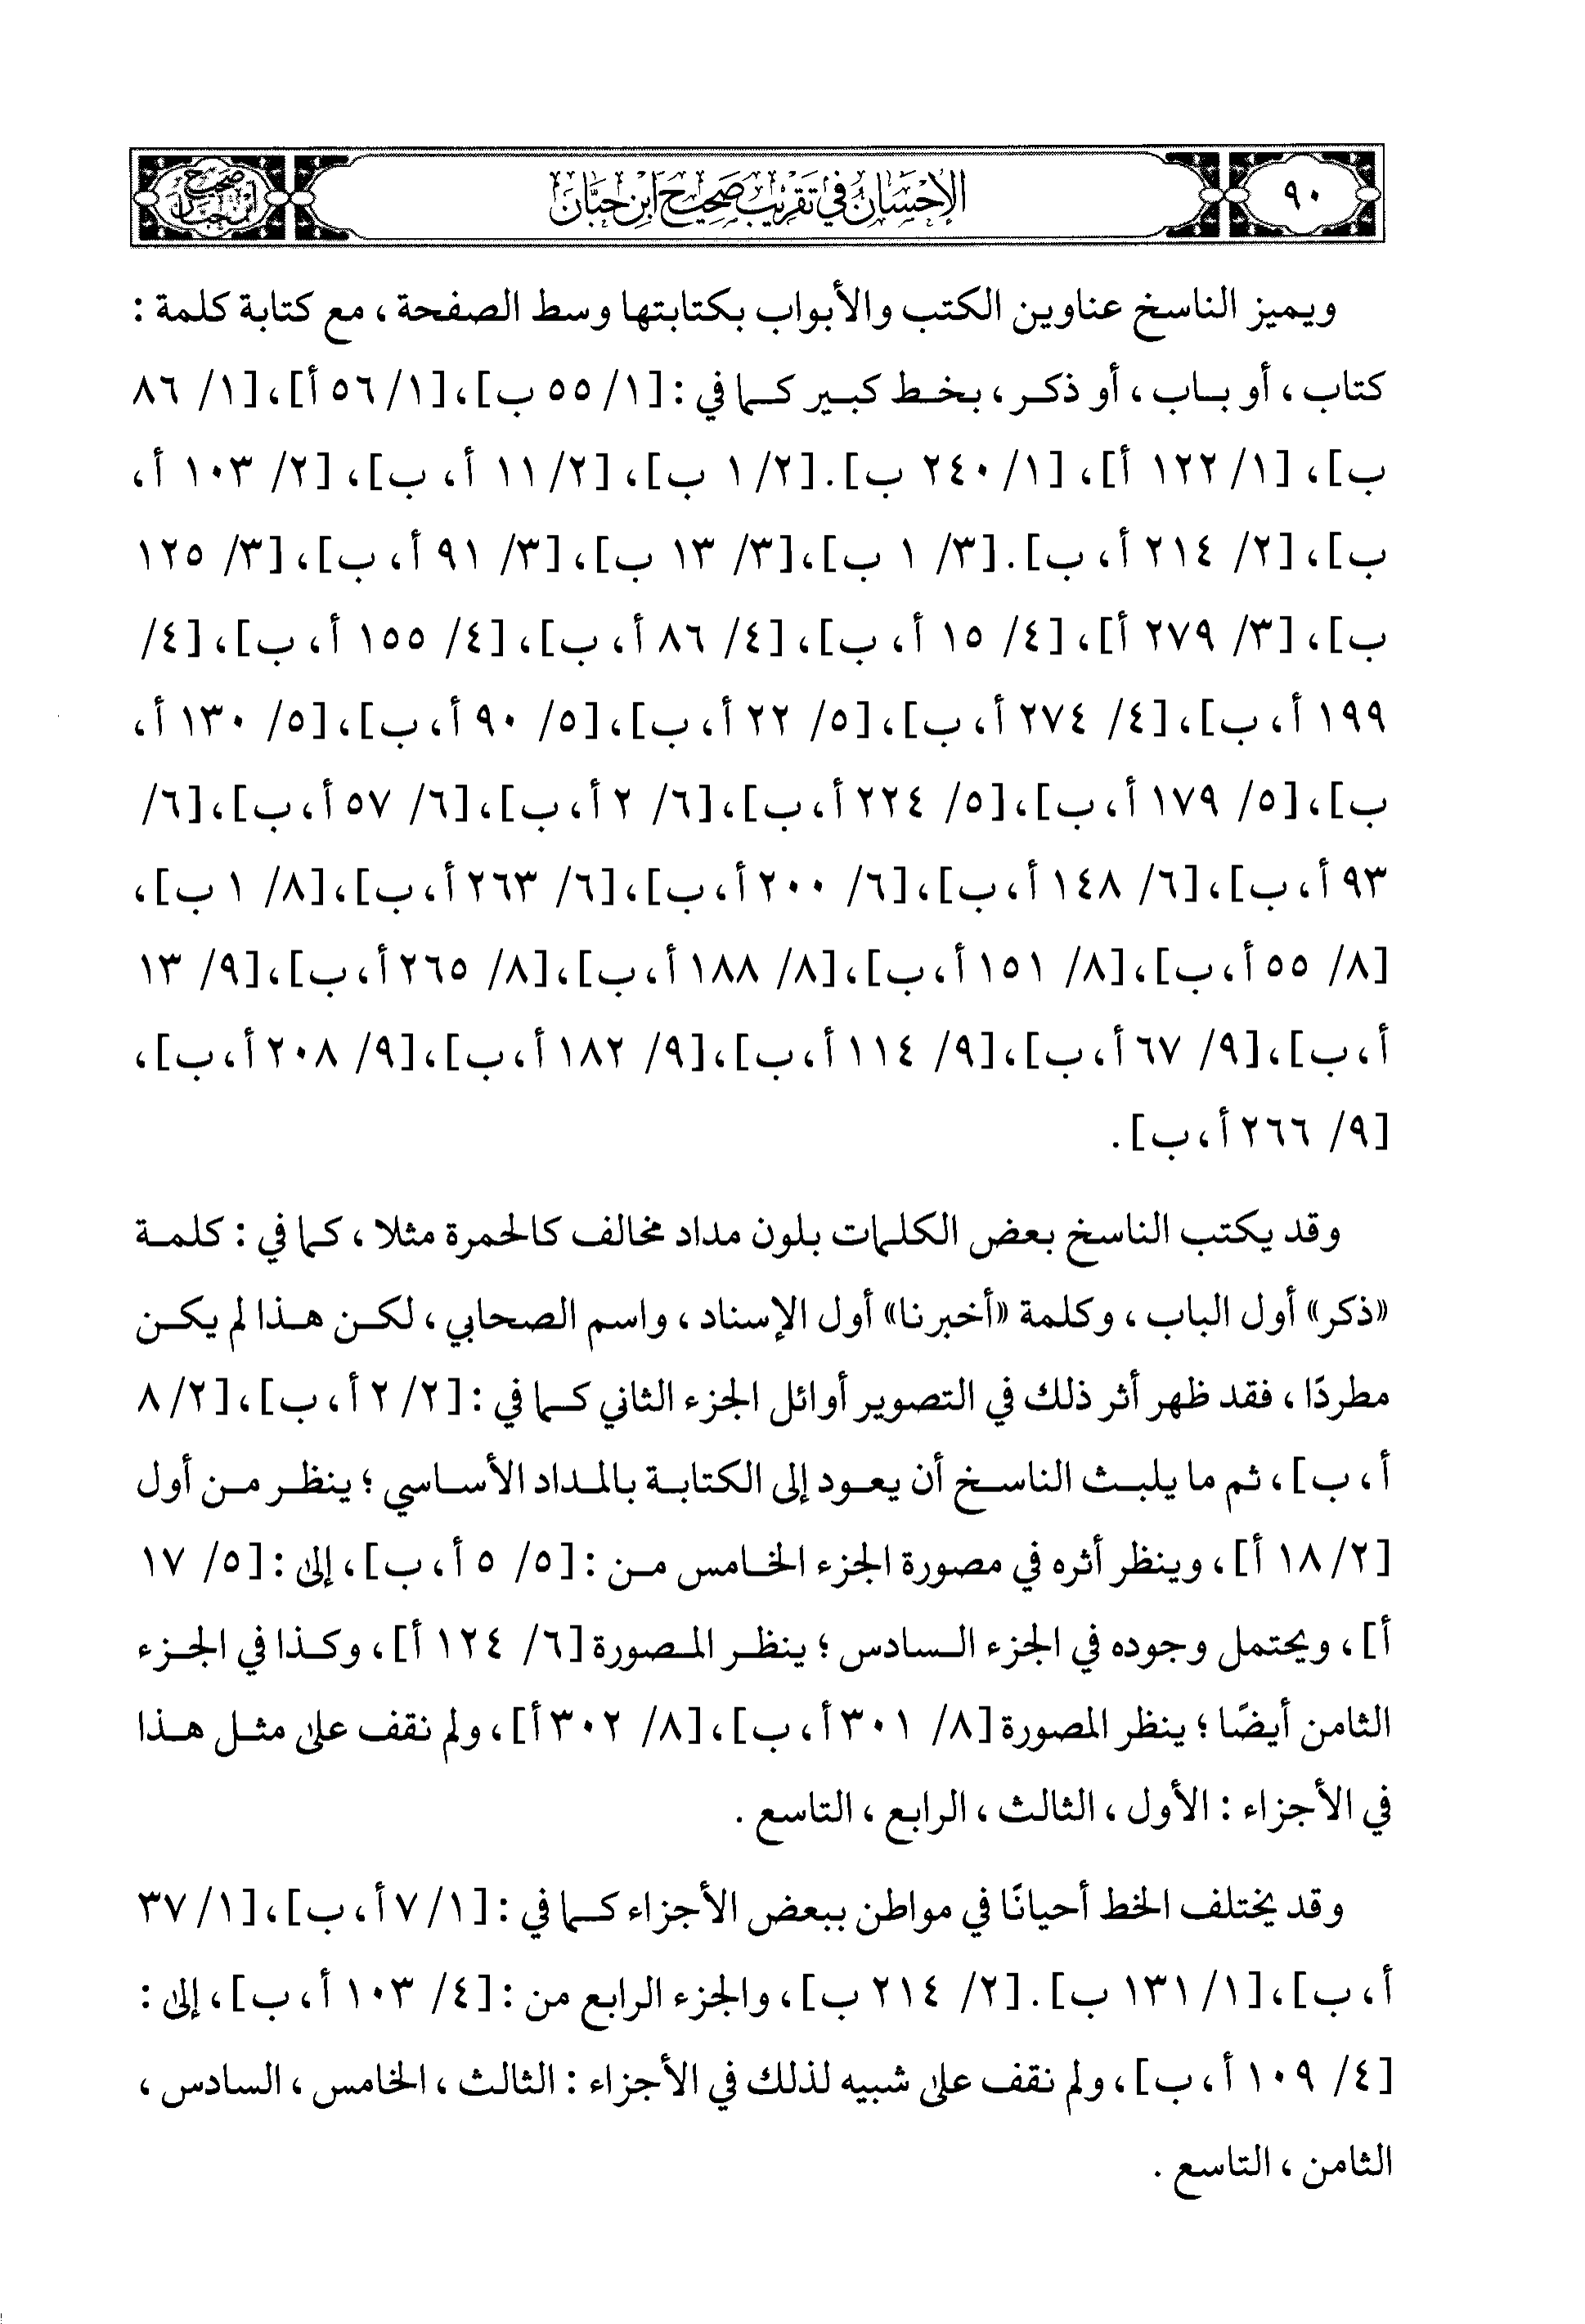 ٩٠
الإحسان في تقريب صحيح ابن حبان
صحيح ابن حبان
ويميز الناسخ عناوين الكتب والأبواب بكتابتها وسط الصفحة ، مع كتابة كلمة :
كتاب ، أو باب ، أو ذكر ، بخط كبير كما في : [١/ ٥٥ ب]، [١/ ٥٦ أ]، [١/ ٨٦
ب]، [١/ ١٢٢ أ]، [١/ ٢٤٠ ب]. [٢/ ١ ب]، [٢/ ١١ أ، ب]، [٢/ ١٠٣ أ،
ب]، [٢/ ٢١٤ أ، ب]. [٣/ ١ ب]، [٣/ ١٣ ب]، [٣/ ٩١ أ، ب]، [٣/ ١٢٥
ب]، [٣/ ٢٧٩ أ]، [٤/ ١٥ أ، ب]، [٤/ ٨٦ أ، ب]، [٤/ ١٥٥ أ، ب]، [٤/
١٩٩ أ، ب]، [٤/ ٢٧٤ أ، ب]، [٥/ ٢٢ أ، ب]، [٥/ ٩٠ أ، ب]، [٥/ ١٣٠ أ،
ب]، [٥/ ١٧٩ أ، ب]، [٥/ ٢٢٤ أ، ب]، [٦/ ٢ أ، ب]، [٦/ ٥٧ أ، ب]، [٦/
٩٣ أ، ب]، [٦/ ١٤٨ أ، ب]، [٦/ ٢٠٠ أ، ب]، [٦/ ٢٦٣ أ، ب]، [٨/ ١ ب]،
[٨/ ٥٥ أ، ب]، [٨/ ١٥١ أ، ب]، [٨/ ١٨٨ أ، ب]، [٨/ ٢٦٥ أ، ب]، [٩/ ١٣
أ، ب]، [٩/ ٦٧ أ، ب]، [٩/ ١١٤ أ، ب]، [٩/ ١٨٢ أ، ب]، [٩/ ٢٠٨ أ، ب]،
[٩/ ٢٦٦ أ، ب] .
وقد يكتب الناسخ بعض الكلمات بلون مداد مخالف كالحمرة مثلا ، كما في : كلمة
«ذكر» أول الباب ، وكلمة «أخبرنا» أول الإسناد ، واسم الصحابي ، لكن هذا لم يكن
مطردًا ، فقد ظهر أثر ذلك في التصوير أوائل الجزء الثاني كما في : [٢/ ٢ أ، ب]، [٢/ ٨
أ، ب]، ثم ما يلبث الناسخ أن يعود إلى الكتابة بالمداد الأساسي ؛ ينظر من أول
[٢/ ١٨ أ]، وينظر أثره في مصورة الجزء الخامس من : [٥/ ٥ أ، ب]، إلى : [٥/ ١٧
أ]، ويحتمل وجوده في الجزء السادس ؛ ينظر المصورة [٦/ ١٢٤ أ]، وكذا في الجزء
الثامن أيضًا ؛ ينظر المصورة [٨/ ٣٠١ أ، ب]، [٨/ ٣٠٢ أ]، ولم نقف على مثل هذا
في الأجزاء : الأول ، الثالث ، الرابع ، التاسع .
وقد يختلف الخط أحيانًا في مواطن ببعض الأجزاء كما في : [١/ ٧ أ، ب]، [١/ ٣٧
أ، ب]، [١/ ١٣١ ب]. [٢/ ٢١٤ ب]، والجزء الرابع من : [٤/ ١٠٣ أ، ب]، إلى :
[٤/ ١٠٩ أ، ب]، ولم نقف على شبيه لذلك في الأجزاء : الثالث ، الخامس ، السادس ،
الثامن ، التاسع .